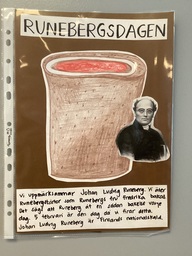 RUNEBERGSDAGEN
Vi uppmärksammar Johan Ludvig Runeberg. Vi äter
Runebergstårtor som Runebergs fru Fredrika bakade.
Det sägs att Runeberg åt en sådan bakelse varje
dag. 5 februari är den dag då vi firar detta.
Johan Ludvig Runeberg är Finlands nationalskald.